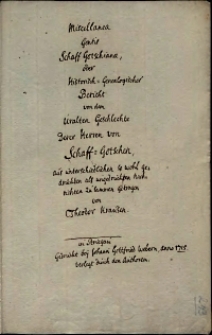 Miscellanea
Gentis
Schaff Gotschiana,
oder
Historisch-Genealogischer
Bericht
von dem
Uralten Geschlechte
Derer Herren von
Schaff-Gotschen,
aus unterschiedlichen so wohl ge
druckten als ungedruckten Nach
richten zusammen getragen
von
Theodor Krausen.
in Striegau
Gedruckt bey Johann Gottfried Webern, Anno 1715
verlegt durch den Authorem.